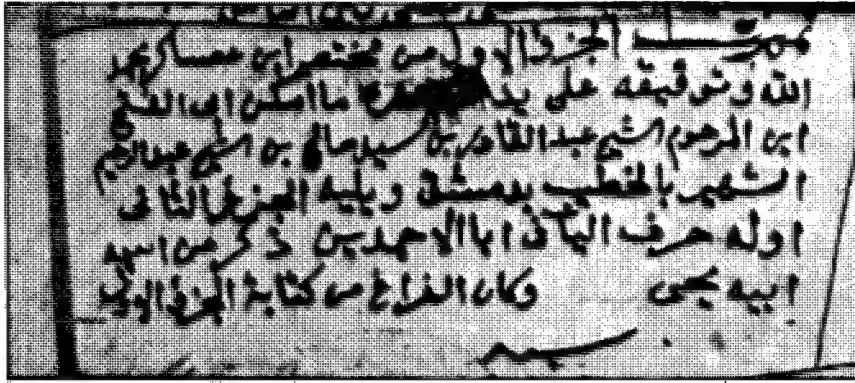 تمت الجزؤ الاول من مختصر ابن عساكر بحمد
الله وتوفيقه على يد ابى الفتح
ابن المرحوم الشيخ عبد القادر بن السيد صالح بن الشيخ عبد الرحيم
الشهير بالخطيب بدمشق ويليه الجزؤ الثانى
اوله حرف اليا فى ابا الاحمدين ذكر من اسمه
ابيه يحيى وكان الفراغ من كتابة الجزؤ الاول